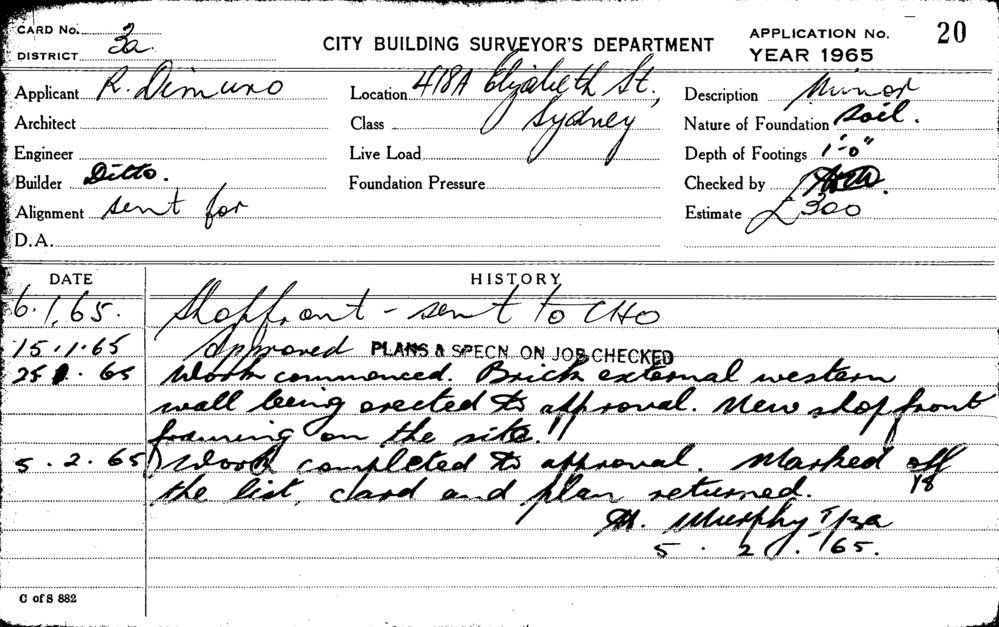 CARD No.
DISTRICT 3a
CITY BUILDING SURVEYOR'S DEPARTMENT
APPLICATION No. 20
YEAR 1965
Applicant R. Dimuro
Location 418A Elizabeth St.,
Sydney
Description Minor
Architect
Class
Nature of Foundation Soil.
Engineer
Live Load
Depth of Footings 1'-0"
Builder Ditto.
Foundation Pressure
Checked by
Alignment sent for
Estimate £300
D.A.
DATE HISTORY
6.1.65. Shopfront - sent to CHO
15.1.65 Approved PLANS & SPECN. ON JOB CHECKED
25 1. 65 Work commenced. Brick external western
wall being erected to approval. New shop front
framing on the site.
5.2.65 Work completed to approval. Marked off
the list, card and plan returned.
Murphy
5.2.65.
C of S 882